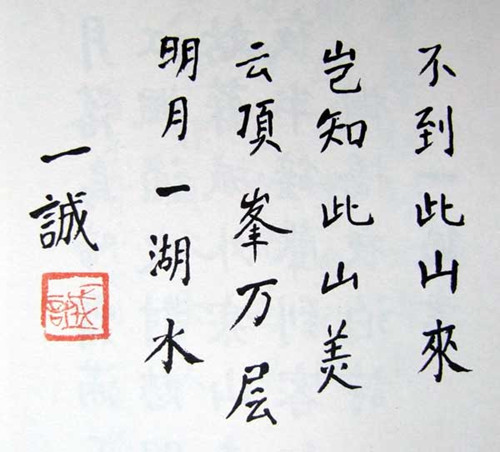 不到此山來
岂知此山美
云頂峯万层
明月一湖水
一誠
一誠